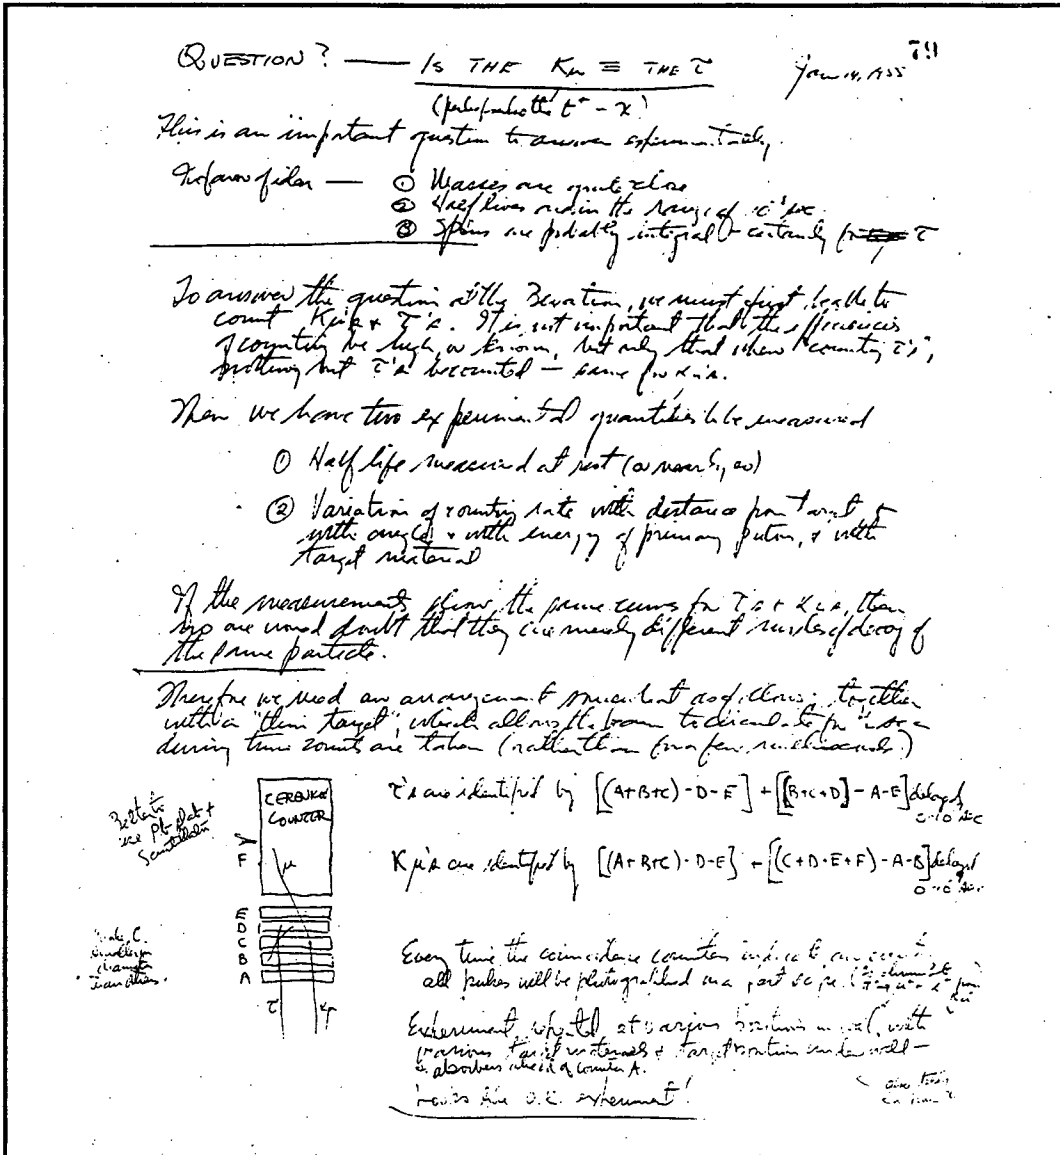 79
QUESTION? — IS THE Kμ ≡ THE τ
Jan 14, 1955
This is an important question to answer experimentally.
In favor of idea — ① Masses are quite close
② Half lives are in the range of
③ Spins are probably integral certainly for τ
To answer the question at the Bevatron, we must first be able to
count Kμ's + τ's. It is not important that the efficiencies
of counting be high, or known, but only that when "counting τ's",
nothing but τ's be counted — same for Kμ's.
Then we have two experimental quantities to be measured
① Half life measured at rest (or nearly so)
② Variation of counting rate with distance from target &
with angle & with energy of primary proton, & with
target material
If the measurements show the same curves for τ's + Kμ's, then
no one would doubt that they are merely different modes of decay of
the same particle.
Therefore we need an arrangement somewhat as follows: together
with a "thin target", which allows the beam to circulate for
during time counts are taken (rather than for a few milliseconds)
τ's are identified by [(A+B+C)-D-E] + [[B+C+D]-A-E] delayed
Kμ's are identified by [(A+B+C)-D-E] + [(C+D+E+F)-A-B] delayed
Better to
use Pb plate +
Scintillator
CERENKOV
COUNTER
F
μ
E
D
C
B
A
τ
Kμ
Make C
smaller in
diameter
than others.
Every time the coincidence counters indicate an event
all pulses will be photographed on a fast scope
Experiment repeated at various positions in well, with
various target materials & target position under well —
& absorbers ahead of counter A.
Looks like O.K. experiment!